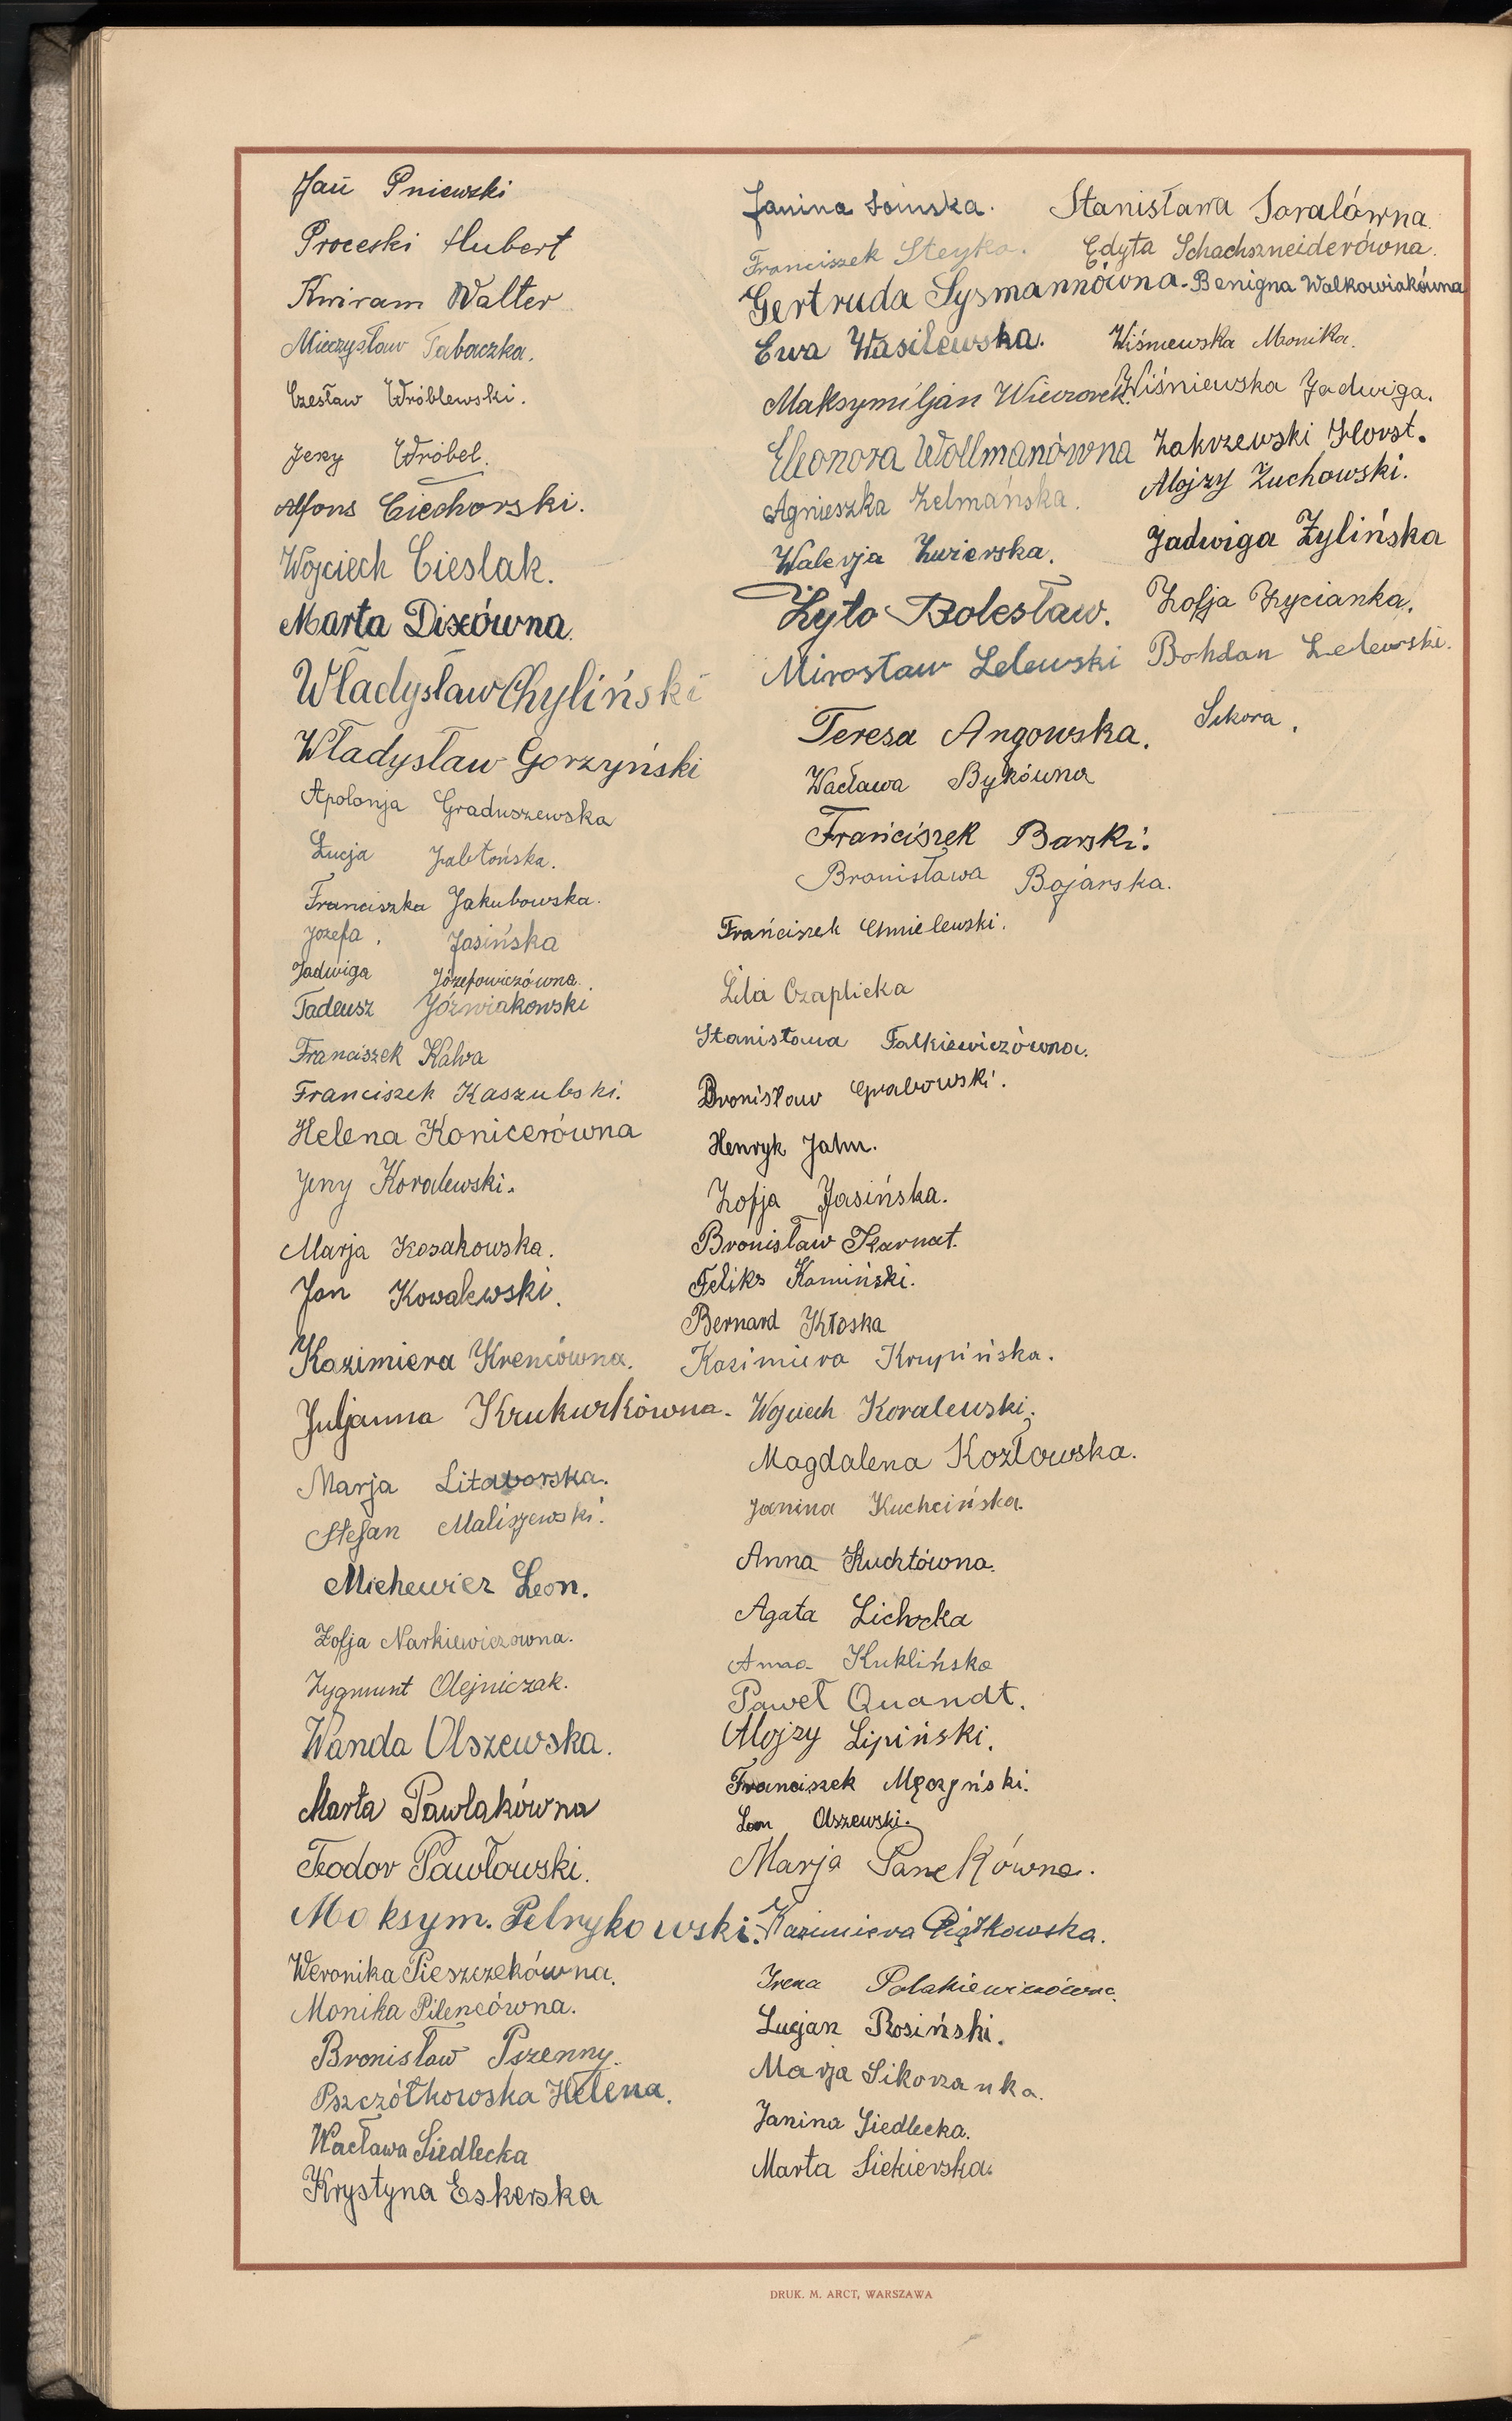 Jan Pniewski
Proceski Hubert
Kwiram Walter
Mieczysław Tabaczka.
Czesław Wróblewski.
Jerzy Wróbel.
Alfons Ciechorski.
Wojciech Cieslak.
Marta Dixówna.
Władysław Chyliński
Władysław Gorzyński
Apolonja Graduszewska
Łucja Jabłońska.
Franciszka Jakubowska.
Józefa, Jasińska
Jadwiga Józefowiczówna.
Tadeusz Jóźwiakowski
Franciszek Kalva
Franciszek Kaszubski.
Helena Konicerówna
Jerzy Koralewski.
Marja Kosakowska.
Jan Kowalewski.
Kazimiera Krencówna.
Juljanna Krukurkówna.
Marja Litaworska.
Stefan Maliszewski.
Michewicz Leon.
Zofja Narkiewiczówna.
Zygmunt Olejniczak.
Wanda Olszewska.
Marta Pawlakówna
Teodor Pawłowski.
Maksym. Pelrykowski.
Weronika Pieszczekówna.
Monika Pilencówna.
Bronisław Pszenny.
Pszczółkowska Helena.
Wacława Siedlecka
Krystyna Eskerska
Janina Sońska.
Franciszek Steyka.
Gertruda Sysmannówna.
Ewa Wasilewska.
Maksymiljan Wieczorek.
Eleonora Wollmanówna
Agnieszka Zelmańska.
Walerja Zwierska.
Żyto Bolesław.
Mirosław Lelewski
Teresa Angowska.
Wacława Bykówna
Franciszek Barski.
Bronisława Bojarska.
Franciszek Chmielewski.
Lila Czaplicka
Stanisława Falkiewiczówna.
Bronisław Grabowski.
Henryk Jahn.
Zofja Jasińska.
Bronisław Karnat.
Feliks Kamiński.
Bernard Kłoska
Kazimiera Krupińska.
Wojciech Koralewski.
Magdalena Kozłowska.
Janina Kuchcińska.
Anna Kuchtówna.
Agata Lichocka
Anna Kuklińska
Paweł Quandt.
Alojzy Lipiński.
Franciszek Męczyński.
Leon Olszewski.
Marja Panekówna.
Kazimiera Piątkowska.
Irena Polakiewiczówna.
Lucjan Rosiński.
Marja Sikorzanka.
Janina Siedlecka.
Marta Siekierska.
Stanisława Toralówna.
Edyta Schachszneiderówna.
Benigna Walkowiakówna
Wiśniewska Monika.
Wiśniewska Jadwiga.
Zakrzewski Horst.
Alojzy Żuchowski.
Jadwiga Żylińska
Zofja Życianka.
Bohdan Lelewski.
Sikora.
DRUK. M. ARCT, WARSZAWA